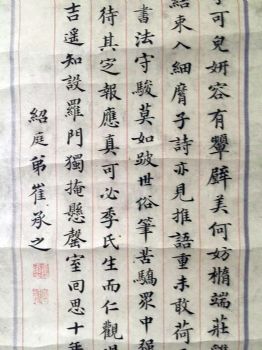 可皃妍容有顰璧美何妨橢端莊雜
結束入細麿子詩亦見推語重未敢荷
書法守駿莫如跛世俗筆苦驕眾中强
待其定報應真可必季氏生而仁觀過
吉遙知設羅門獨掩懸罄室回思十年
紹庭弟崔承之